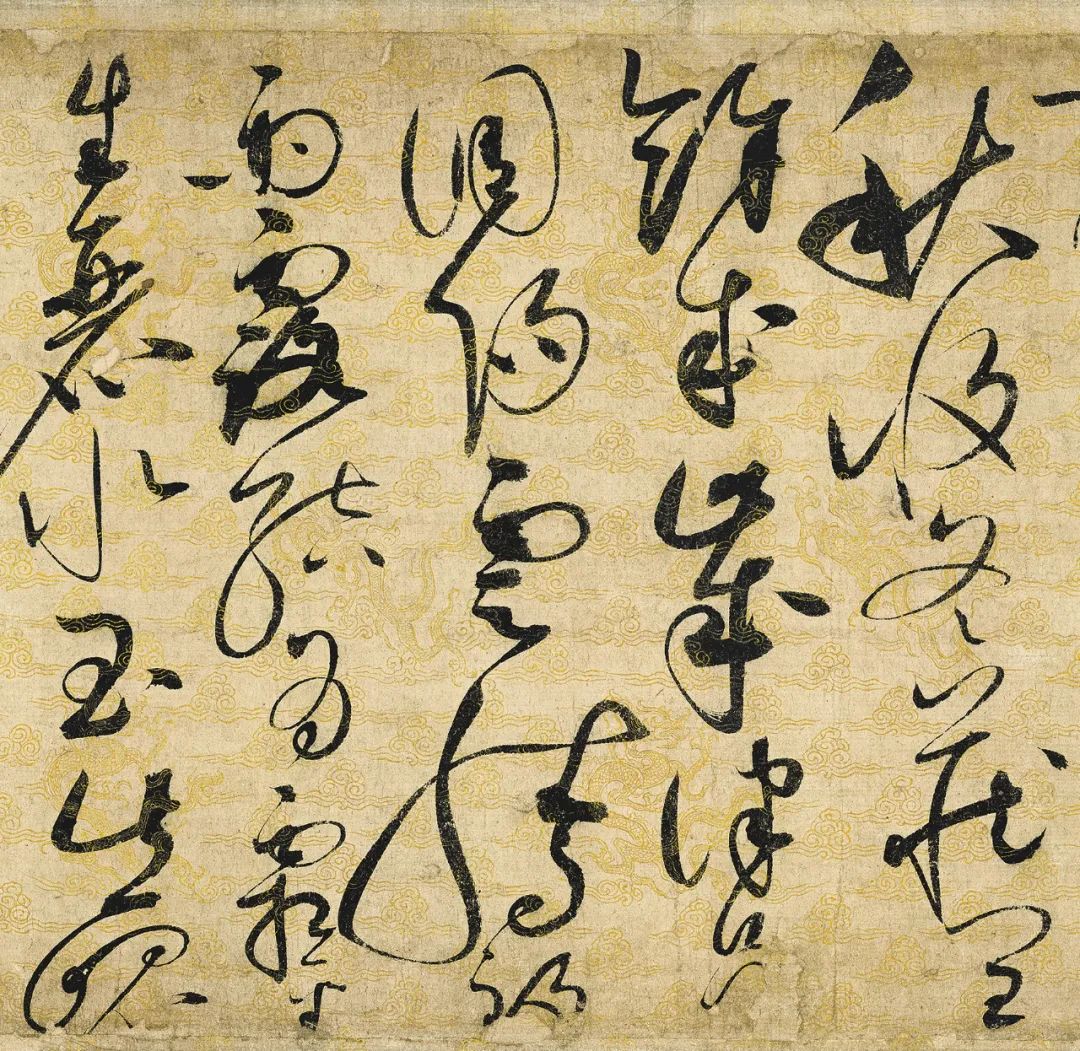 秋收冬藏閏
餘成歲律呂
調陽雲騰致
雨露結為霜金
生麗水玉出崑